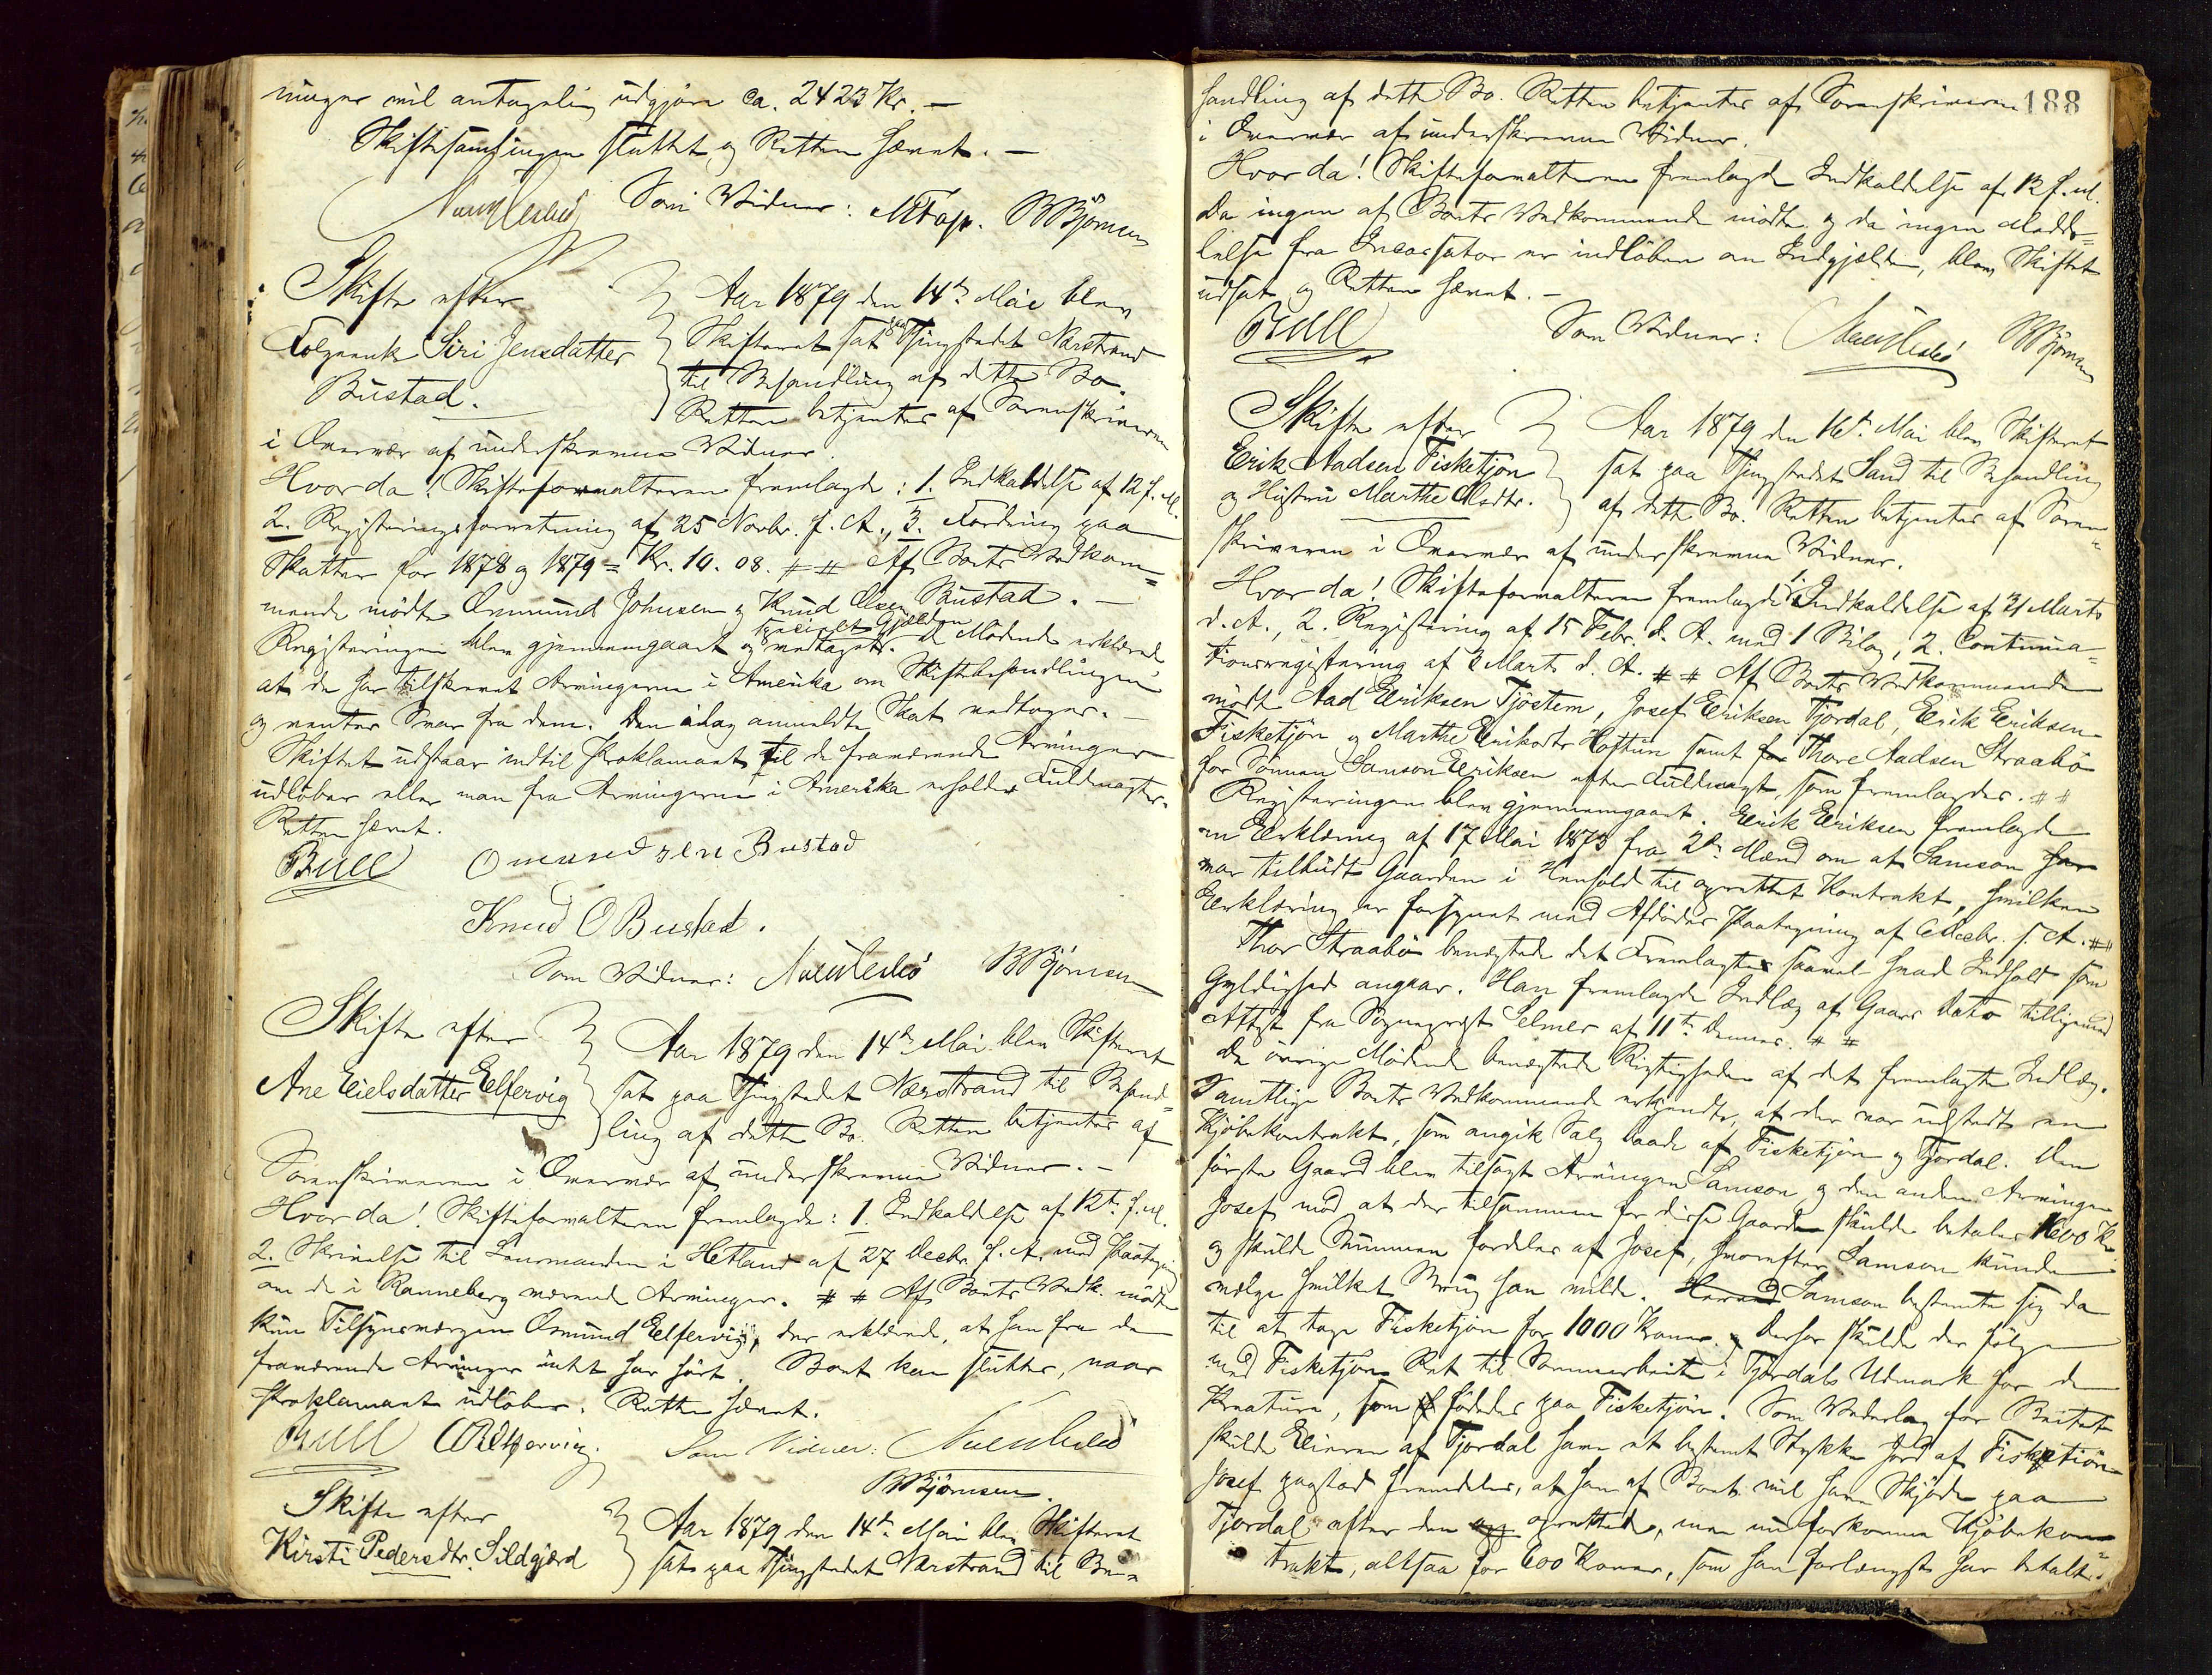 ninger vil antagelig udgjøre ca. 2423 Kr. –
Skiftesamlingen sluttet og Retten hævet. –
Som Vidner: BBjörnsen
Skifte efter
Folgeenke Siri Jensdatter
Bustad.
Aar 1879 den 14de Mai blev
Skifteret sat paa Thingstedet Nærstrand
til Behandling af dette Bo.
Retten betjentes af Sorenskriveren
i Overvær af underskrevne Vidner.
Hvorda! Skifteforvalteren fremlagde: 1. Indkaldelse af 12 f. M.
2. Registreringsforretning af 25 Novbr. f. A., 3. Fordring paa
Skatter for 1878 og 1879 = Kr. 10. 08. # # Af Boets Vedkom=
mende mødte Osmund Johnsen og Knud Olsen Bustad. –
Registeringen blev gjennemgaaet og specielt Gjælden vedtaget. De Mødende erklærede
at de har tilskrevet Arvingerne i Amerika om Skiftebehandlingen
og venter Svar fra dem. Den idag anmeldte Skat vedtoges. –
Skiftet udstaar indtil Proklamaet til de fraværende Arvinger
udløber eller man fra Arvingerne i Amerika erholder Fuldmagter.
Retten hævet.
Bull
Knud O Bustad.
Som Vidner: BBjörnsen
Skifte efter
Ane Eielsdatter Elfervig
Aar 1879 den 14de Mai blev Skifteret
sat paa Thingstedet Nærstrand til Behand=
ling af dette Bo. Retten betjentes af
Sorenskriveren i Overvær af underskrevne Vidner. –
Hvorda! Skifteforvalteren fremlagde: 1. Indkaldelse af 12te f. M.
2. Skrivelse til Lensmanden i Hetland af 27 Decbr. f. A. med Paategning
om de i Ranneberg værende Arvinger. # # Af Boets Vedk. mødte
kun Tilsynsværgen Osmund Elfervig, der erklærede, at han fra de
fraværende Arvinger intet har hørt. Boet kan sluttes, naar
Proklamaet udløber. Retten hævet.
Bull Som Vidner:
BBjörnsen.
Skifte efter
Kirsti Pedersdtr. Sildgjærd
Aar 1879 den 14de Mai blev Skifteret
sat paa Thingstedet Nærstrand til Be=
188
handling af dette Bo. Retten betjentes af Sorenskriveren
i Overvær af underskrevne Vidner.
Hvorda! Skifteforvalteren fremlagde Indkaldelse af 12 f. M.
Da ingen af Boets Vedkommende mødte og da ingen Medde=
lelse fra Incassator er indløben om Indgjælden, blev Skiftet
udsat og Retten hævet. –
Bull Som Vidner: BBjörnsen
Skifte efter
Erik Aadsen Fisketjön
og Hustru Marthe Olsdtr.
Aar 1879 den 16de Mai blev Skifteret
sat paa Thingstedet Sand til Behandling
af dette Bo. Retten betjentes af Soren=
skriveren i Overvær af underskrevne Vidner.
Hvorda! Skifteforvalteren fremlagde 1. Indkaldelse af 31 Marts
d. A., 2. Registering af 15 Febr. d. A. med 1 Bilag, 2. Continua=
tionsregistering af 3 Marts d. A. # # Af Boets Vedkommende
mødte Aad Eriksen Tjöstem, Josef Eriksen Tjordal, Erik Eriksen
Fisketjön og Marthe Eriksdtr Hoftun samt for Thore Aadsen Straabö
for Sönnen Samson Eriksen efter Fuldmagt, som fremlagdes. # #
Registeringen blev gjennemgaaet. Erik Eriksen fremlagde
en Erklæring af 17 Mai 1873 fra 2de Mænd om at Samson har
var tilbudt Gaarden i Henhold til oprettet Kontrakt, hvilken
Erklæring er forsynet med Afdødes Paategning af 6 Decbr. s. A. # #
Thor Straabö benægtede det Fremlagtes saavel hvad Indhold som
Gyldighed angaar. Han fremlagde Indlæg af Gaars Dato tilligemed
Attest fra Sogneprest Selmer af 11te dennes. # #
De øvrige Mødende benægtede Rigtigheden af det fremlagte Indlæg.
Samtlige Boets Vedkommende erkjendte, at der var udstedt en
Kjøbekontrakt, som angik Salg baade af Fisketjön og Tjordal. Den
første Gaard blev tilsagt Arvingen Samson og den anden Arvingen
Josef mod at der tilsammen for disse Gaarde skulde betales 1600 Kr.
og skulde Summen fordeles af Josef, hvorefter Samson kunde
vælge hvilket Brug han vilde. Samson bestemte sig da
til at tage Fisketjön for 1000 Kroner. Derfor skulde der følge
med Fisketjön Ret til Sommerbeite i Tjordals Udmark for de
Kreature, som fødedes paa Fisketjön. Som Vederlag for Beitet
skulde Eieren af Tjordal have et bestemt Stykke Jord af Fisketjön
Josef paastod fremdeles, at han af Boet vil have Skjøde paa
Tjordal efter den oprettede, men nu forkomne Kjøbekon=
trakt, altsaa for 600 Kroner, som han forlængst har betalt.